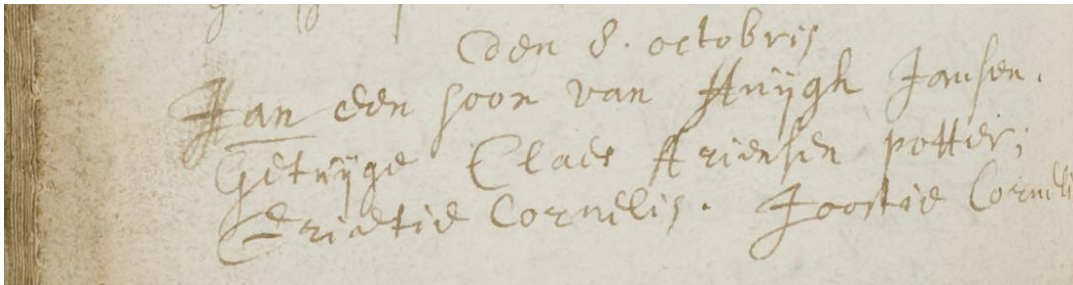 den 8. octobris
Jan een soon van Huijgh Jansen.
Getuijge Claes Ariensen potter;
Crietie Cornelis. Joostie Corneli